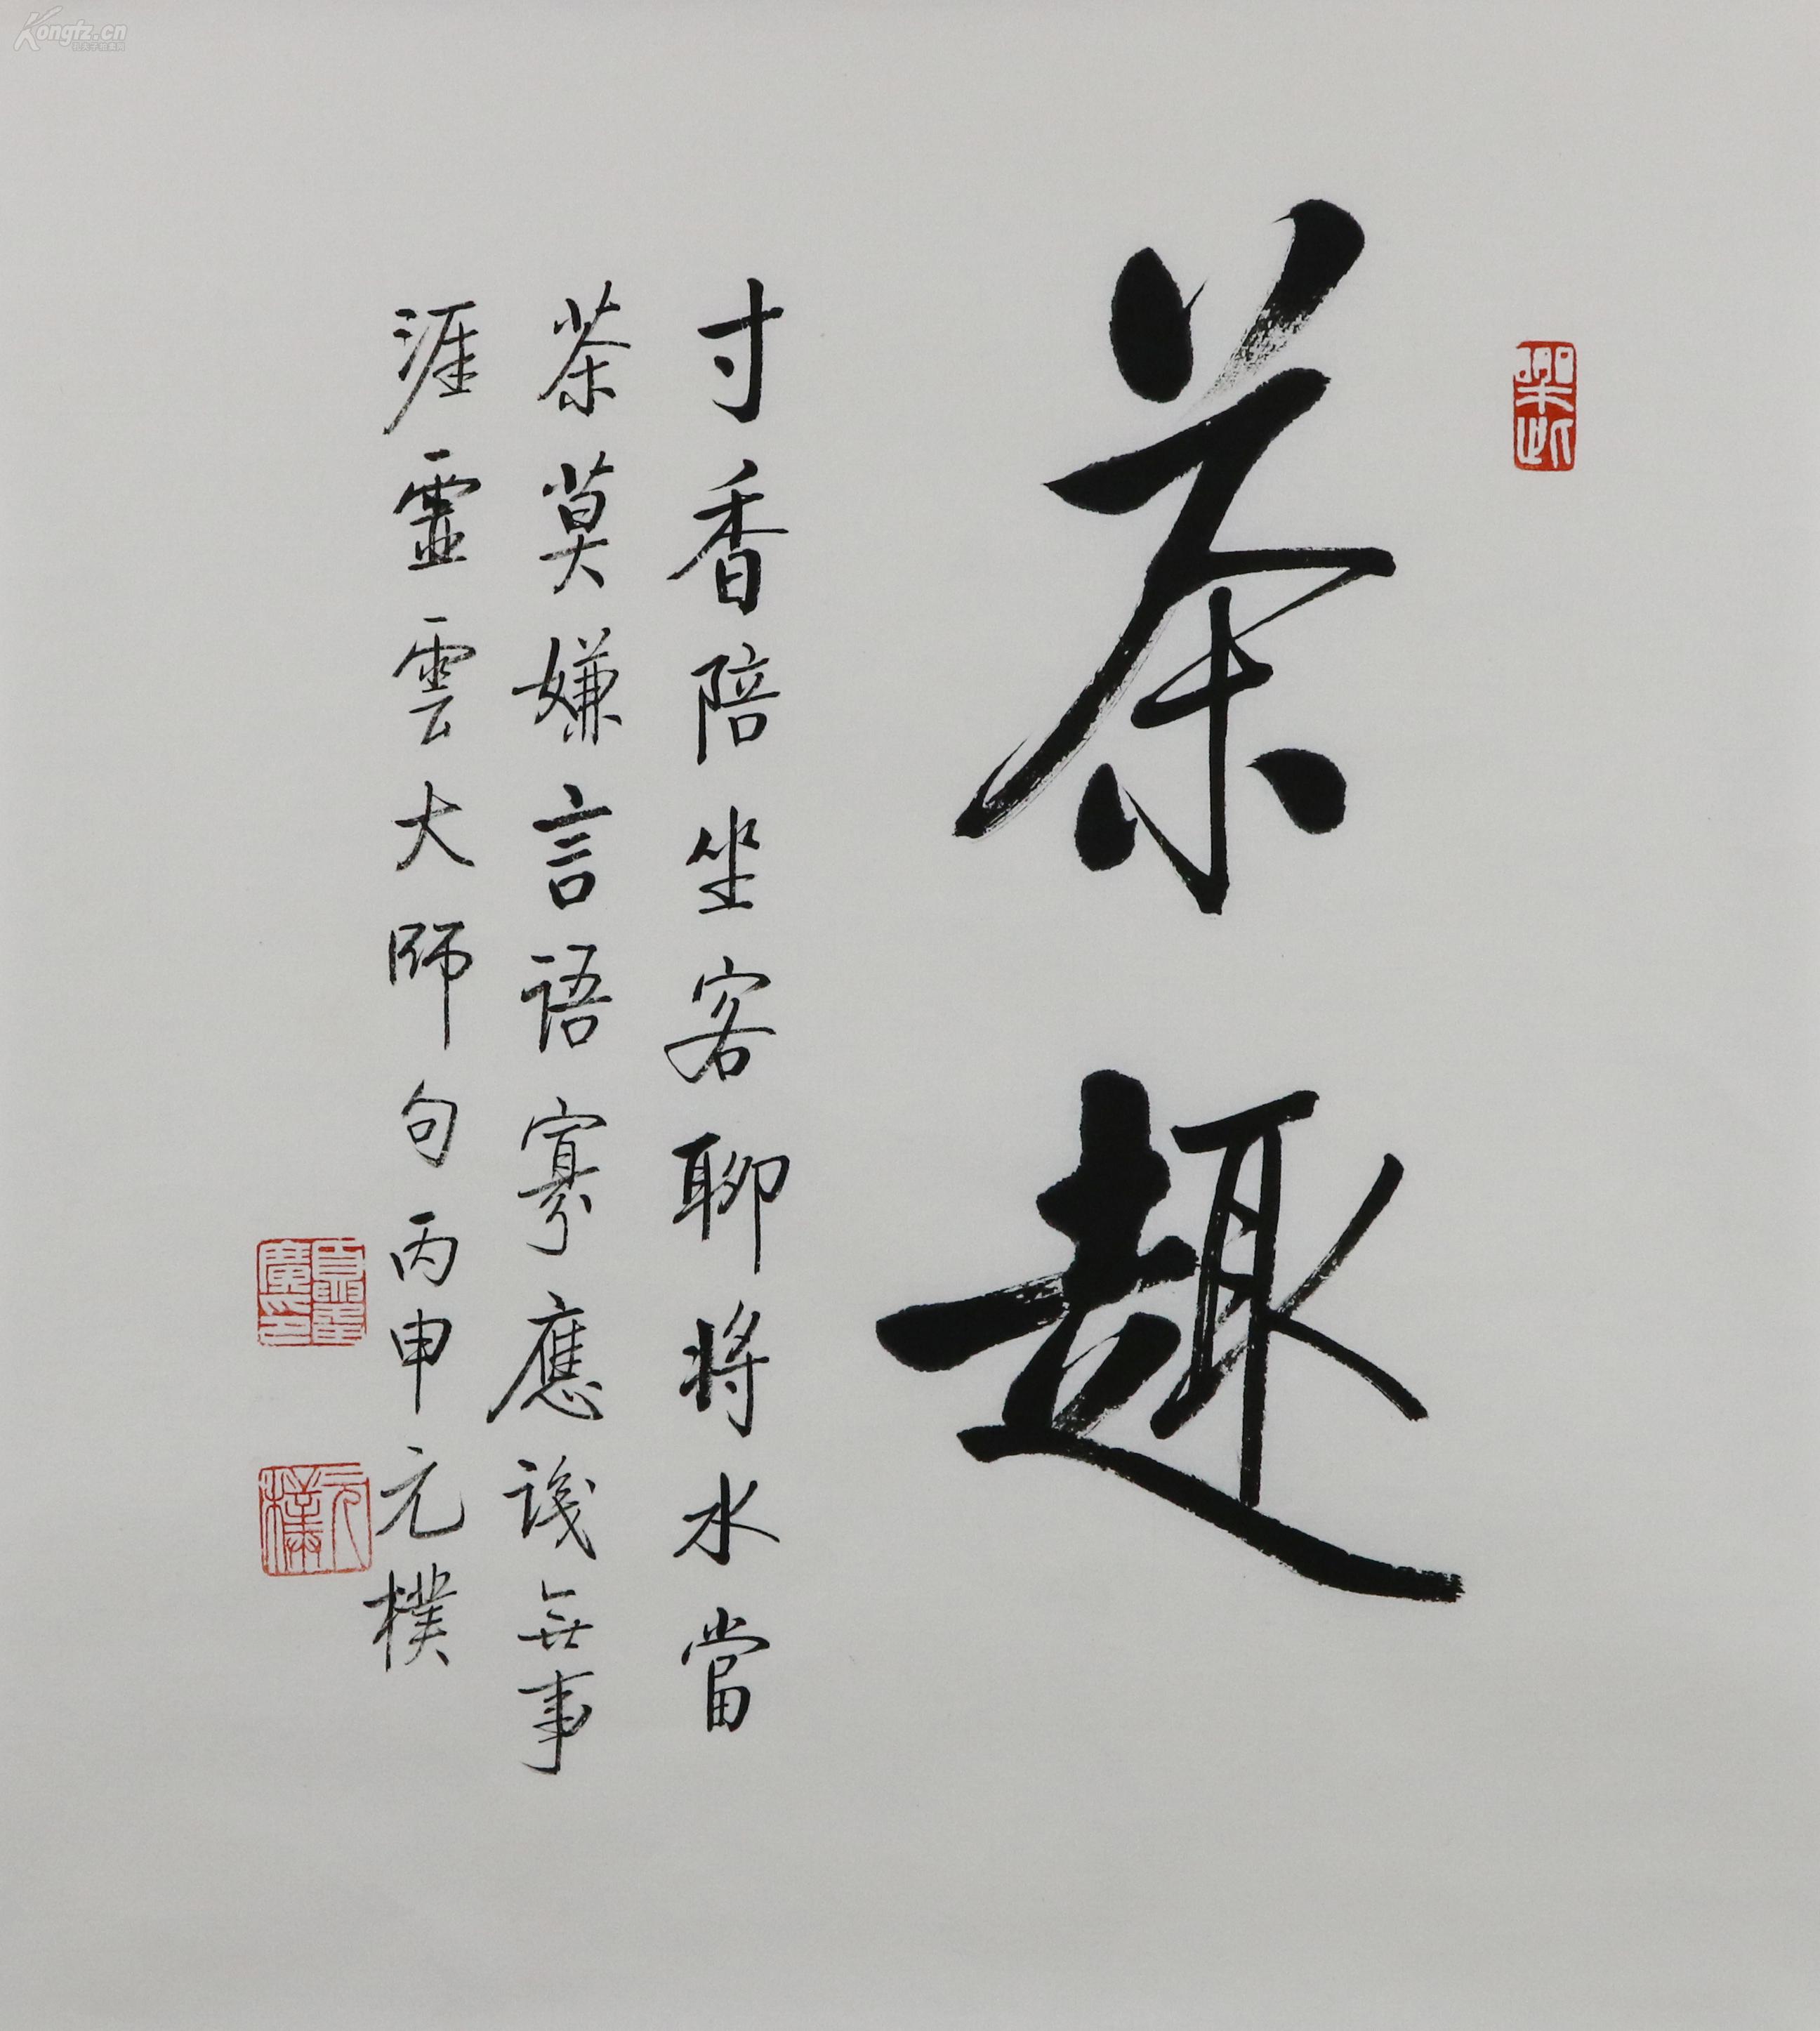 茶趣
寸香陪坐客聊將水當
茶莫嫌言語寡應識無事
涯靈雲大師句丙申元樸
元樸
Kongfz.cn